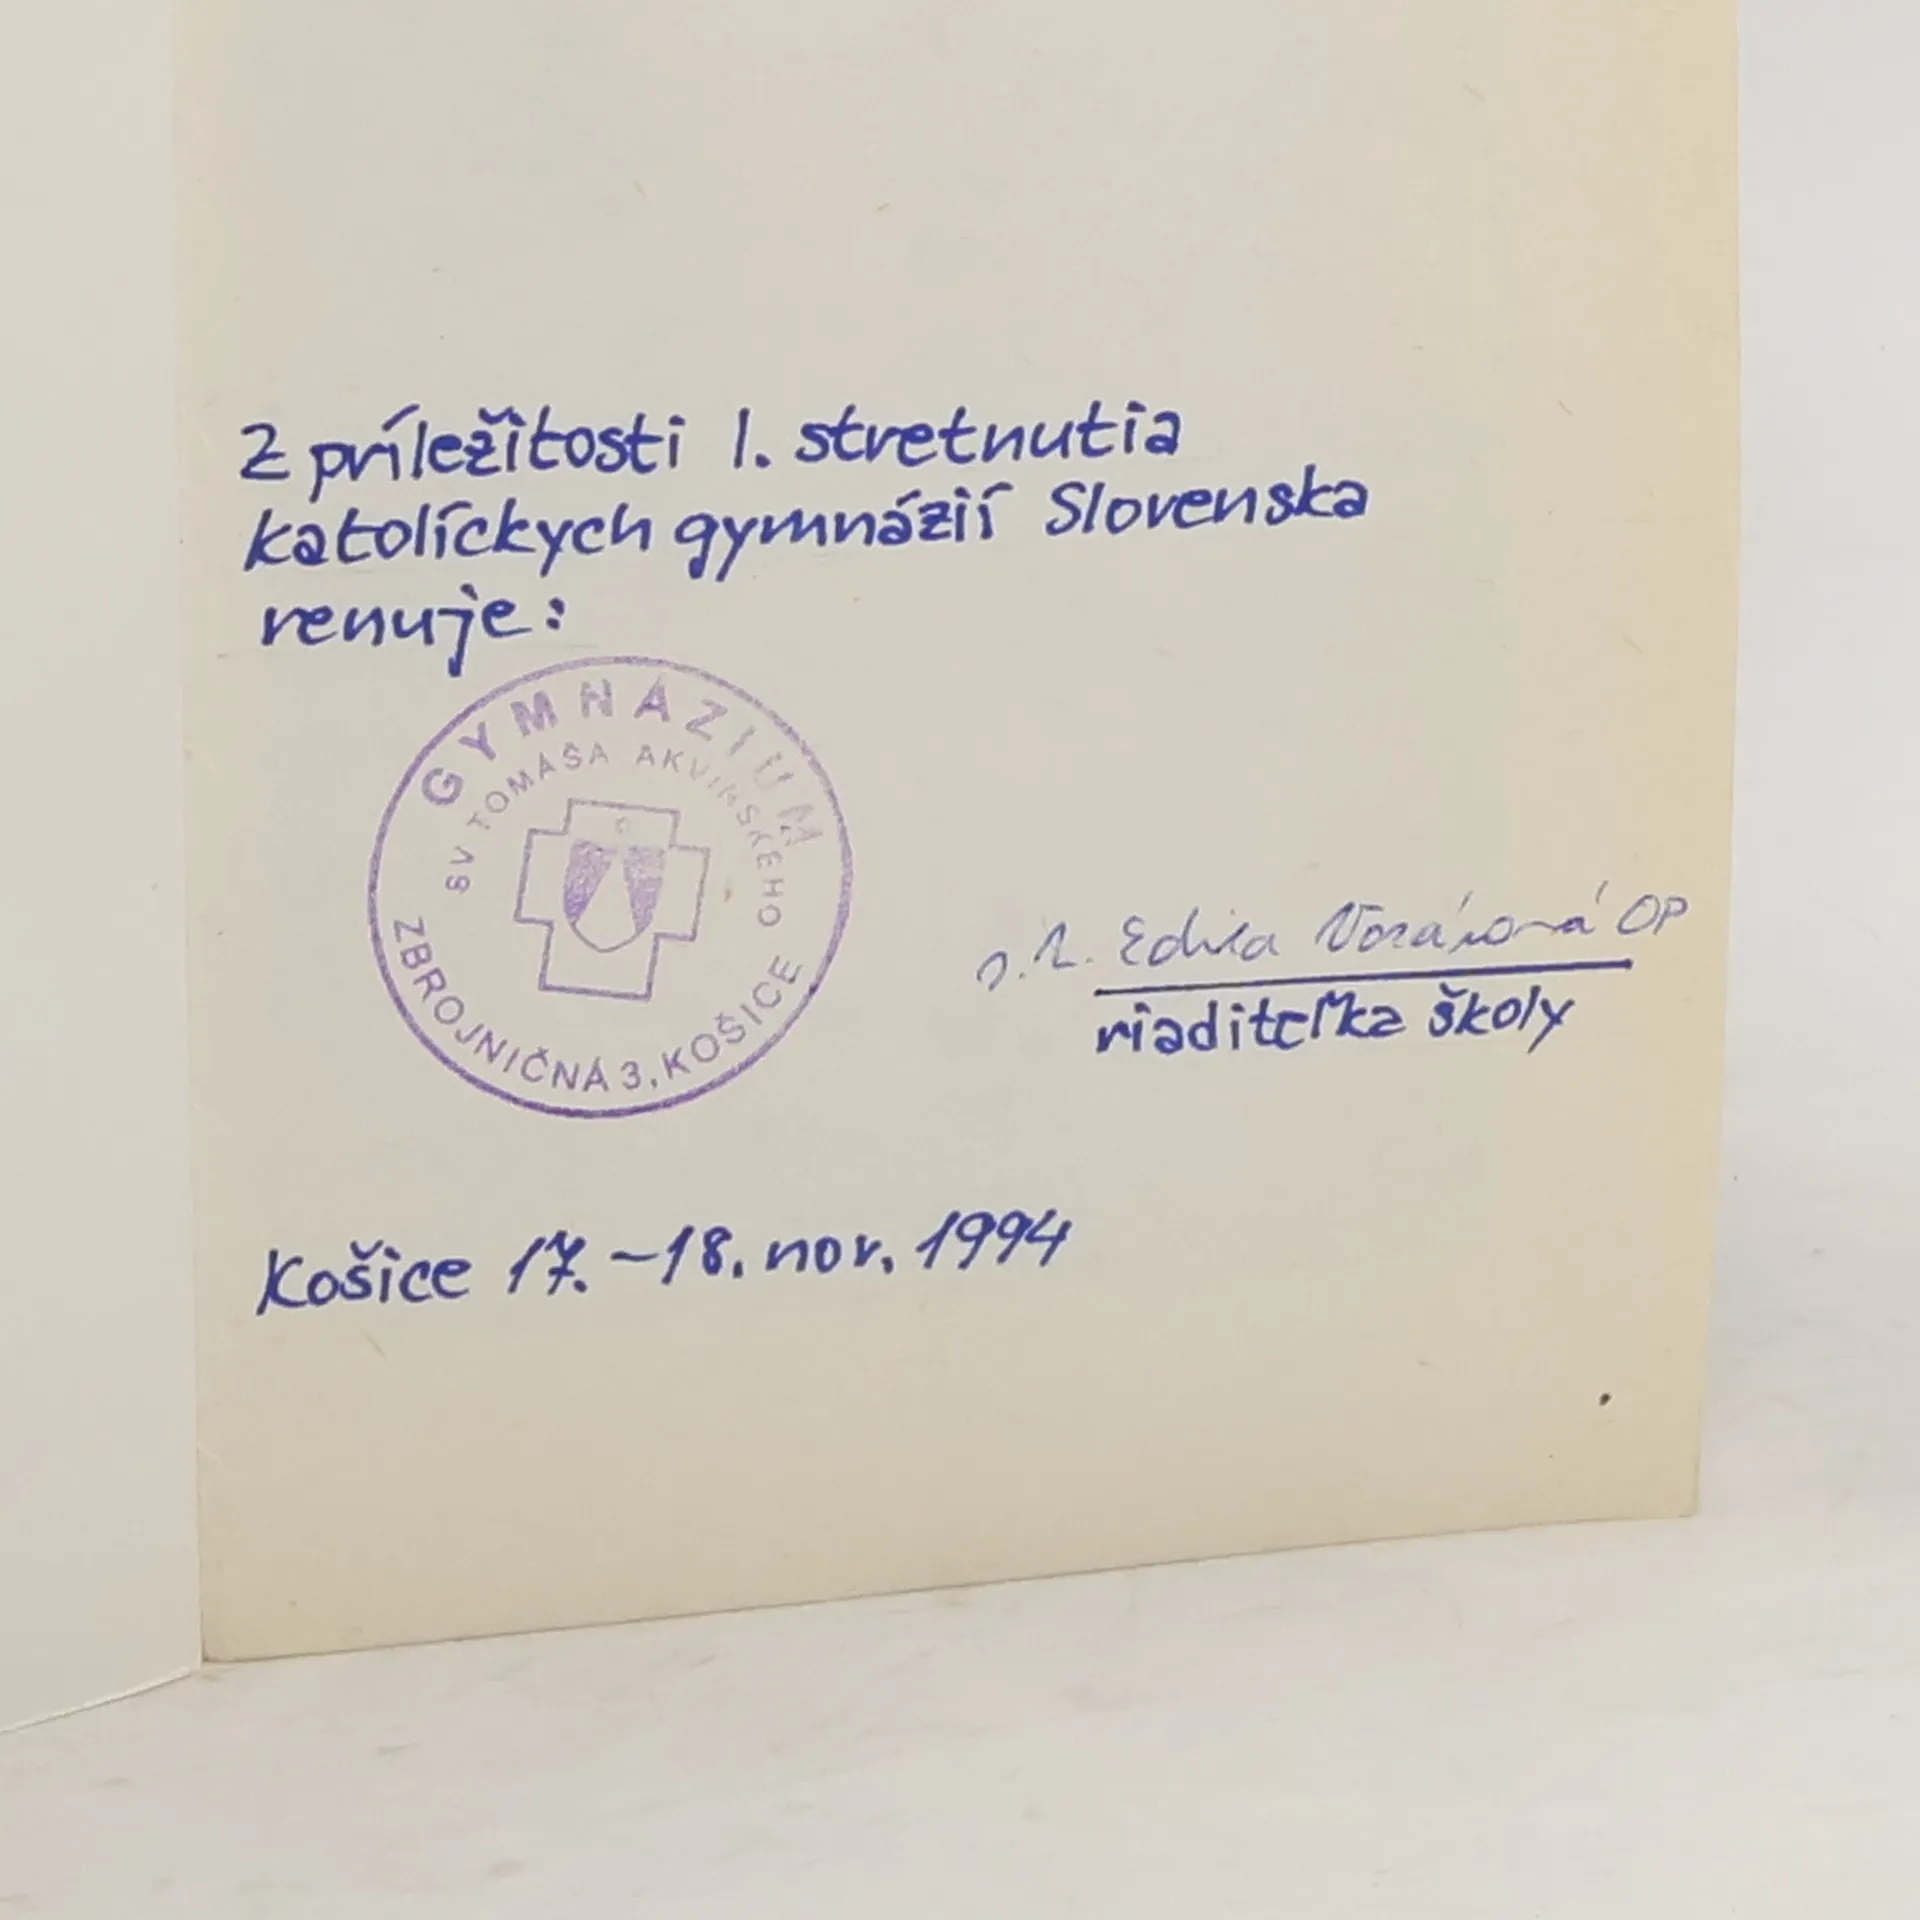 z príležitosti 1. stretnutia
katolíckych gymnázií Slovenska
venuje:
GYMNÁZIUM
SV TOMÁŠA AKVINSKÉHO
ZBROJNIČNÁ 3, KOŠICE
Edita Vozárová OP
riaditeľka školy
Košice 17. – 18. nov. 1994